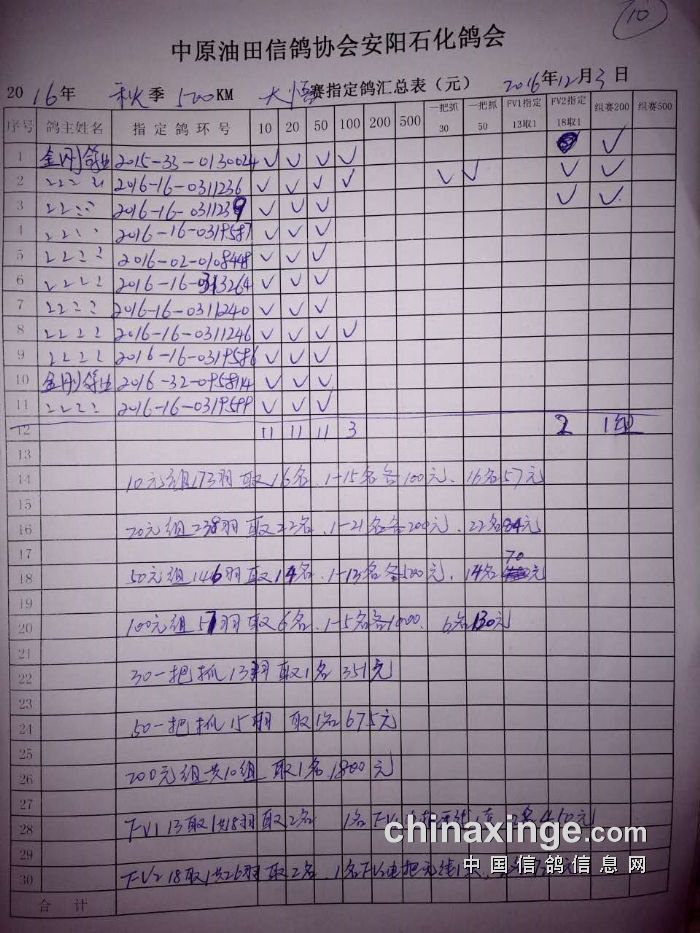 10
中原油田信鸽协会安阳石化鸽会
2016年 秋季 500KM 大悟赛指定鸽汇总表（元） 2016年12月3日
序号 鸽主姓名 指定鸽环号 10 20 50 100 200 500 一把抓30 一把抓50 FV1指定13取1 FV2指定18取1 组赛200 组赛500
1 2015-33-0130024 ✓ ✓ ✓ ✓ ✓
2 2016-16-0311236 ✓ ✓ ✓ ✓ ✓ ✓ ✓ ✓
3 2016-16-0311239 ✓ ✓ ✓ ✓ ✓
4 2016-16-0319587 ✓ ✓ ✓
5 2016-02-0108448 ✓ ✓ ✓
6 2016-16-0313264 ✓ ✓ ✓
7 2016-16-0311240 ✓ ✓ ✓
8 2016-16-0311246 ✓ ✓ ✓ ✓
9 2016-16-0319586 ✓ ✓ ✓
10 2016-32-0958114 ✓ ✓ ✓
11 2016-16-0319599 ✓ ✓ ✓
12 11 11 11 3 2 1组
13
14 10元组173羽取16名、1-15名各100元、16名57元
15
16 20元组238羽取22名、1-21名各200元、22名84元
17
18 50元组146羽取14名、1-13名各500元、14名70元
19
20 100元组57羽取6名、1-5名各1000、6名130元
21
22 30一把抓13羽取1名351元
23
24 50一把抓15羽 取1名675元
25
26 200元组共10组 取1名1800元
27
28 FV1 13取1共18羽取2名 1名FV1 450元
29
30 FV2 18取1共26羽取2名、1名FV2电把
合计
chinaxinge.com
中国信鸽信息网